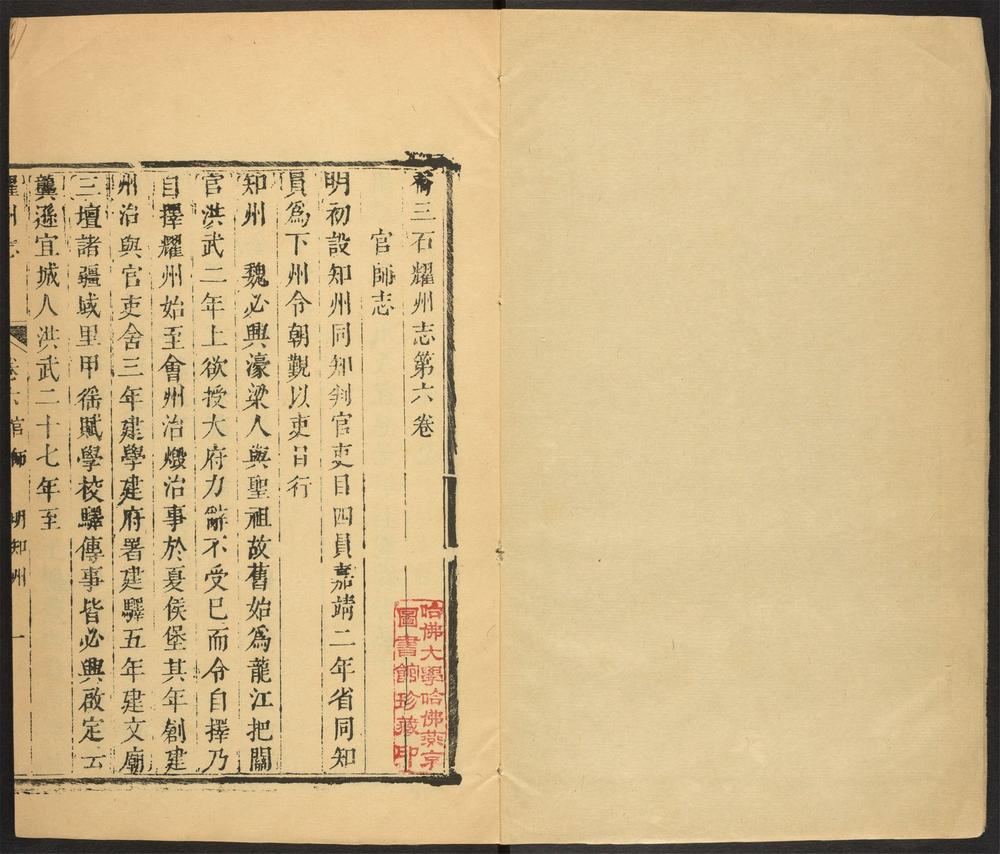 喬三石耀州志第六卷
官師志
明初設知州同知判官吏目四員嘉靖二年省同知
員為下州令朝覲以吏目行
知州 魏必興濠梁人與聖祖故舊始為龍江把關
官洪武二年上欲授大府力辭不受已而令自擇乃
自擇耀州始至會州治燬治事於夏侯堡其年創建
州治與官吏舍三年建學建府署建驛五年建文廟
三壇諸疆域里甲徭賦學校驛傳事皆必興啟定云
龔遜宜城人洪武二十七年至
耀州志 卷六官師 明知州 一
哈佛大學哈佛燕京
圖書館珍藏印